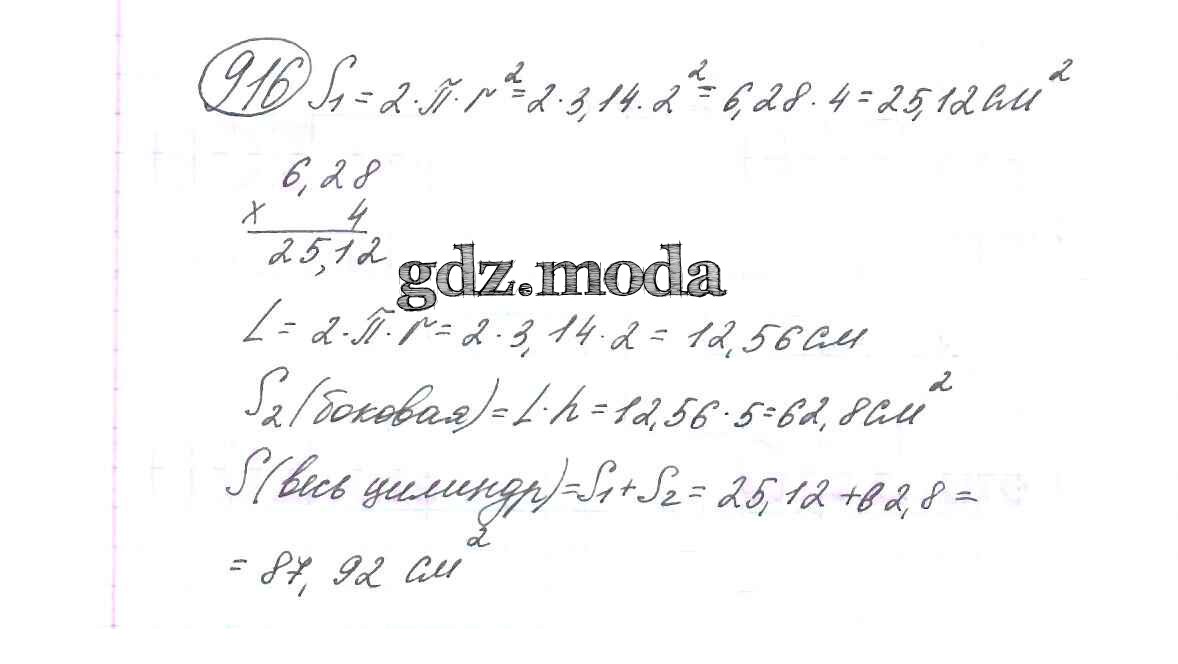 916 S₁ = 2·π·r² = 2·3,14·2² = 6,28·4 = 25,12 см²
6,28
× 4
25,12
gdz.moda
L = 2·π·r = 2·3,14·2 = 12,56 см
S₂ (боковая) = L·h = 12,56·5 = 62,8 см²
S (весь цилиндр) = S₁ + S₂ = 25,12 + 62,8 =
= 87,92 см²